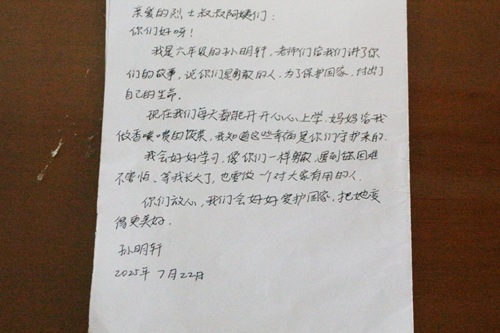 亲爱的烈士叔叔阿姨们：
你们好呀！
我是六年级的孙明轩，老师们给我们讲了你
们的故事，说你们是勇敢的人，为了保护国家，付出了
自己的生命。
现在我们每天都能开开心心上学，妈妈给我
做香喷喷的饭菜，我知道这些幸福是你们守护来的。
我会好好学习，像你们一样勇敢，遇到困难
不害怕。等我长大了，也要做一个对大家有用的人。
你们放心，我们会好好爱护国家，把她变
得更美好。
孙明轩
2025年7月22日